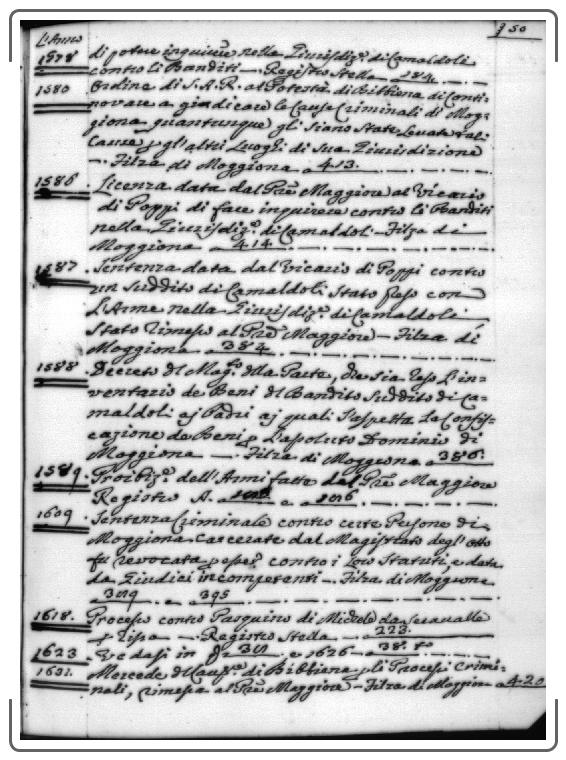 350
L'Anno
1578 di potere inquirire nella Giurisdiz.e di Camaldoli
contro li Banditi — Registro Stella 284
1580 Ordine di S.A.R. al Potestà di Bibbiena di Conti=
novare a giudicare le Cause Criminali di Mog=
giona quantunque gli siano State Levate tal
Cause, e gl'altri Luoghi di Sua Giurisdizione
Filza di Moggiona a 413
1586 Licenza data dal Pre Maggiore al Vicario
di Poppi di fare inquirere contro li Banditi
nella Giurisdiz.e di Camaldoli Filza di
Moggiona 414
1587 Sentenza data dal Vicario di Poppi contro
un Suddito di Camaldoli Stato preso con
L'Arme nella Giurisdiz.e di Camaldoli
Stato rimesso al Pre Maggiore — Filza di
Moggiona a 384
1588 Decreto dl Mag.to dlla Parte, che sia reso L'in=
ventario de Beni dl Bandito Suddito di Ca=
maldoli a i Padri a i quali s'aspetta La Confis=
cazione de Beni p L'assoluto Dominio di
Moggiona — Filza di Moggiona a 386
1589 Proibiz.e dell'Armi fatte dal Pre Maggiore
Registro A. e 1016
1609 Sentenza Criminale contro certe Persone di
Moggiona Carcerate dal Magistrato degl'otto
fu revocata p esser contro i Loro Statuti, e data
da Giudici incompetenti — Filza di Moggiona
389 a 395
1618 Processo contro Pasquino di Michele da Seravalle
p Rissa — Registro Stella 223
1623 Ve da si in 301 e 1626 38.
1631 Mercede dl Caus.co di Bibbiena p li Processi Crimi=
nali, rimessa al Pre Maggiore — Filza di Moggiona a 420